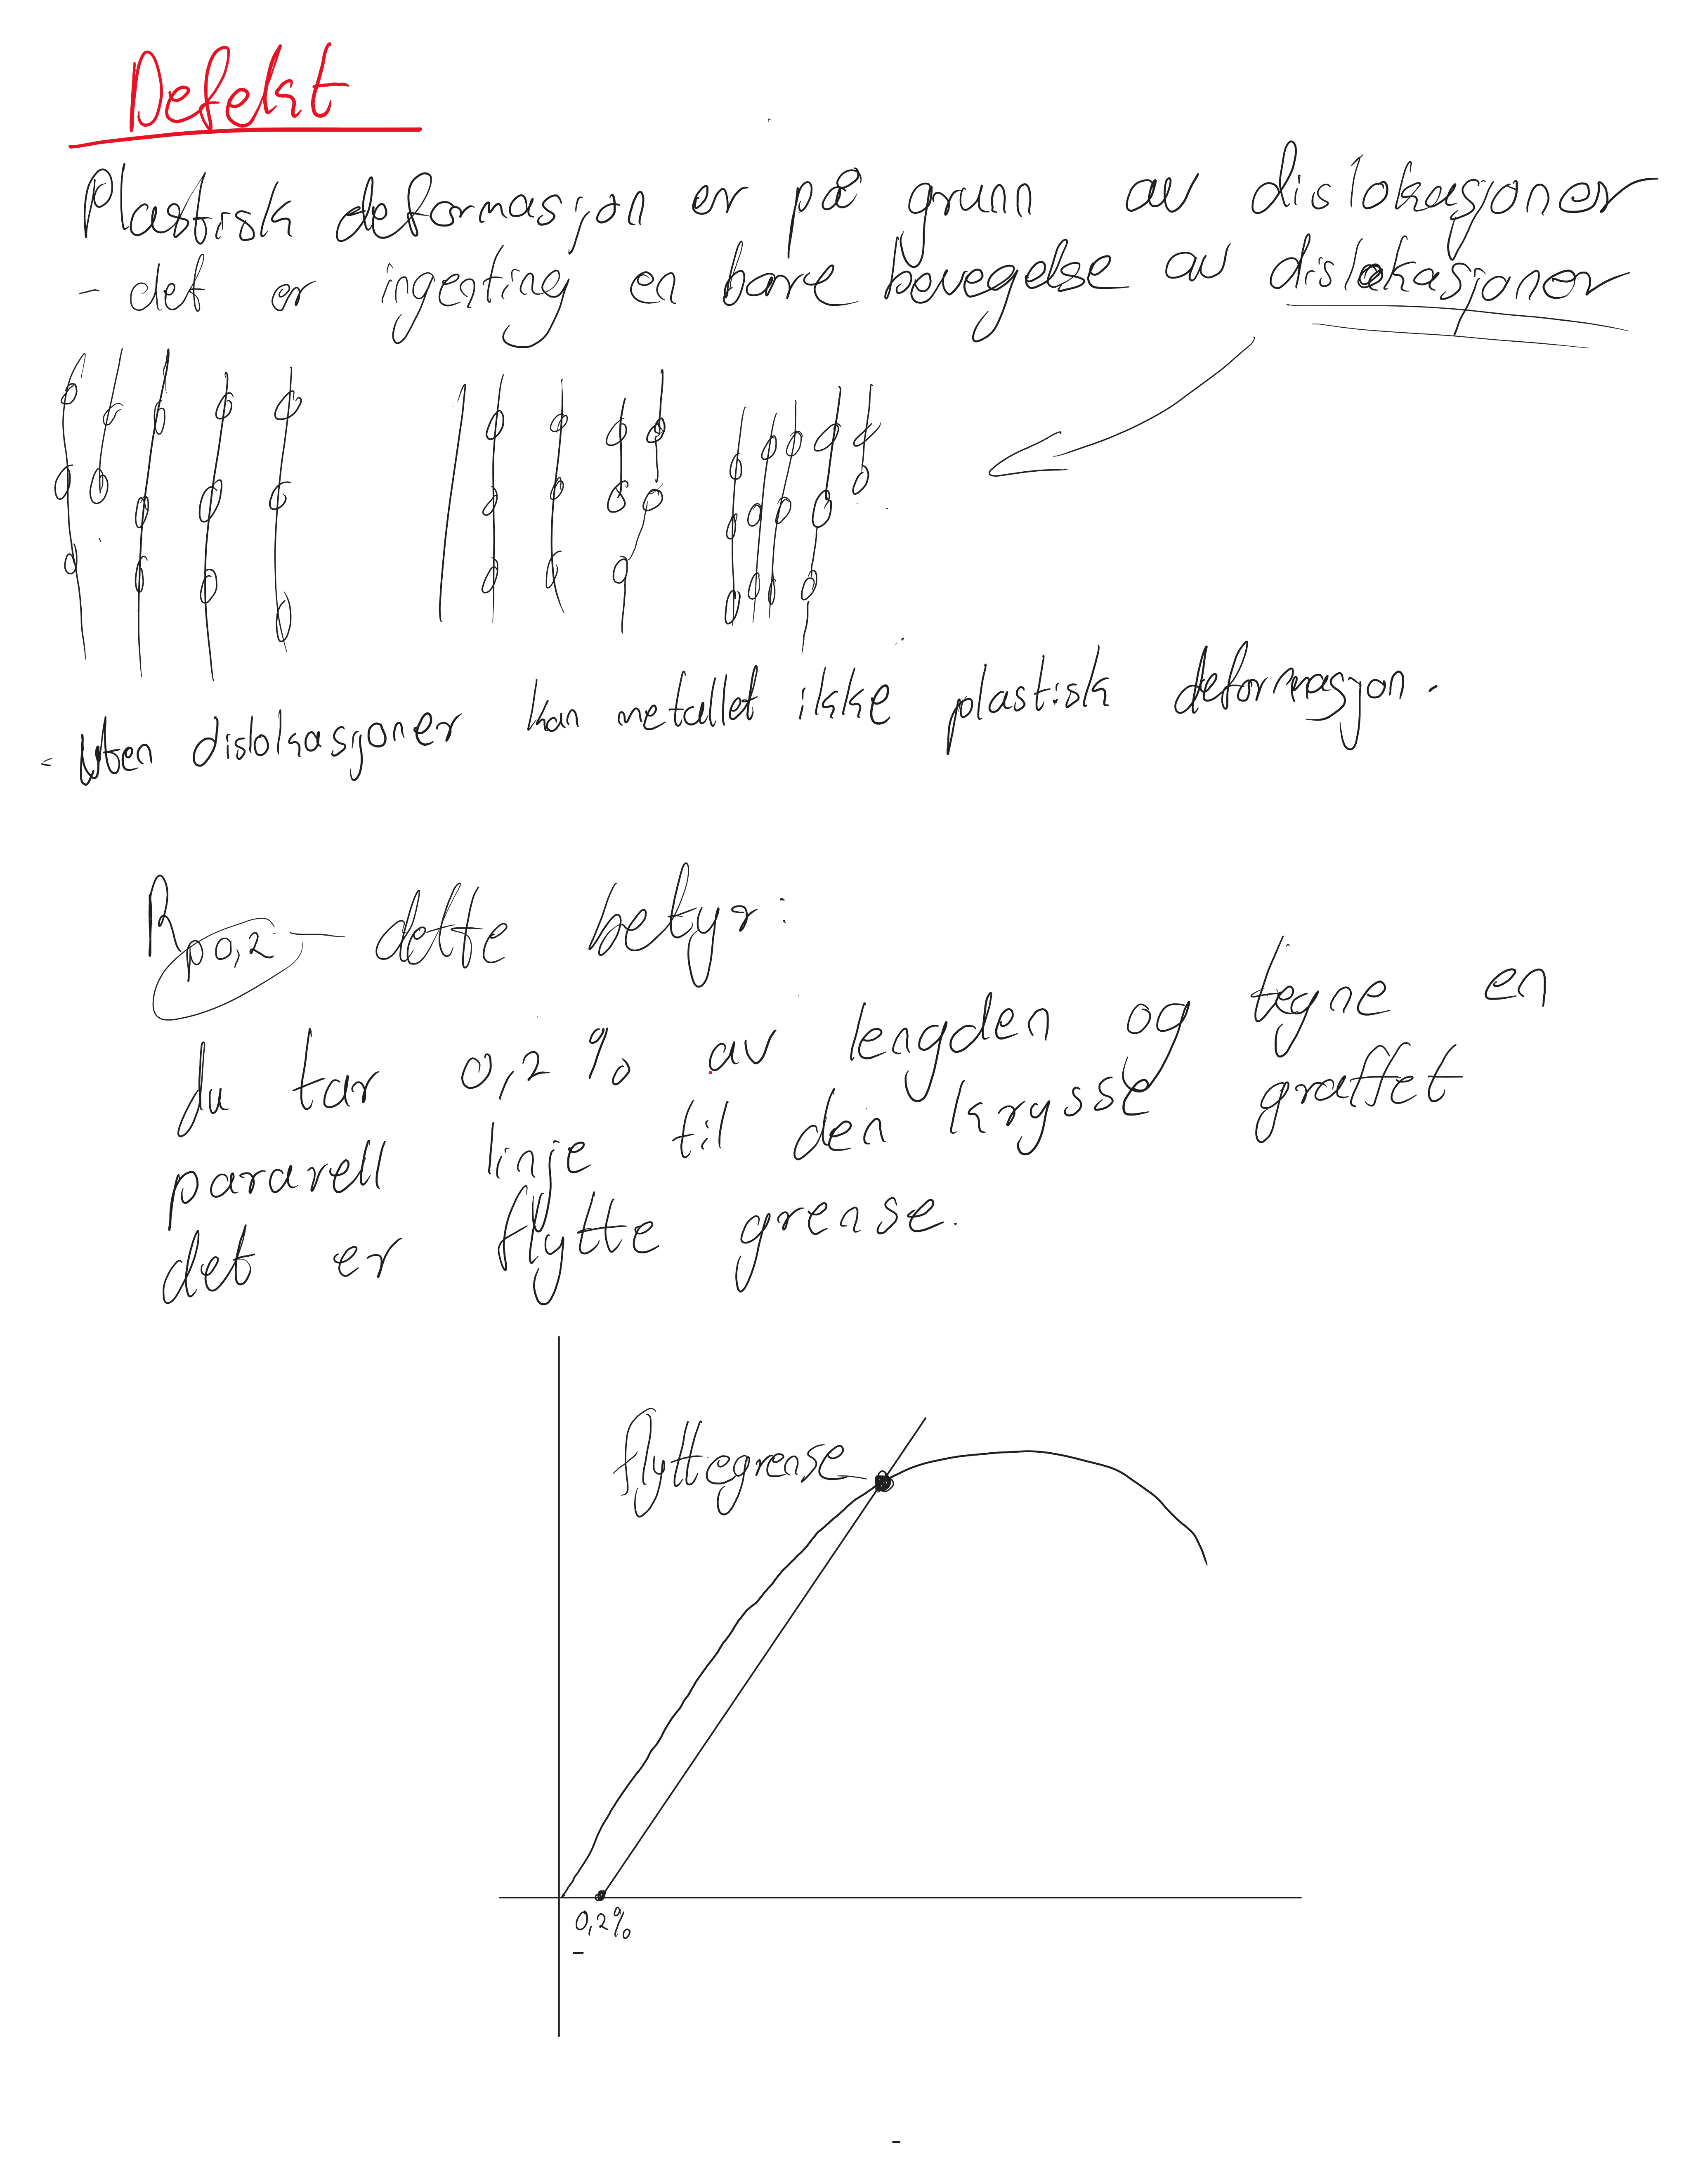 Defekt
Plastisk deformasjon er på grunn av dislokasjoner
- det er ingenting en bare bevegelse av dislokasjoner
- Uten dislokasjoner kan metallet ikke plastisk deformasjon.
Rp0,2 - dette betyr:
du tar 0,2 % av lengden og tegne en
pararell linje til den krysse graffet
det er flytte grense.
flyttegrense
0,2%